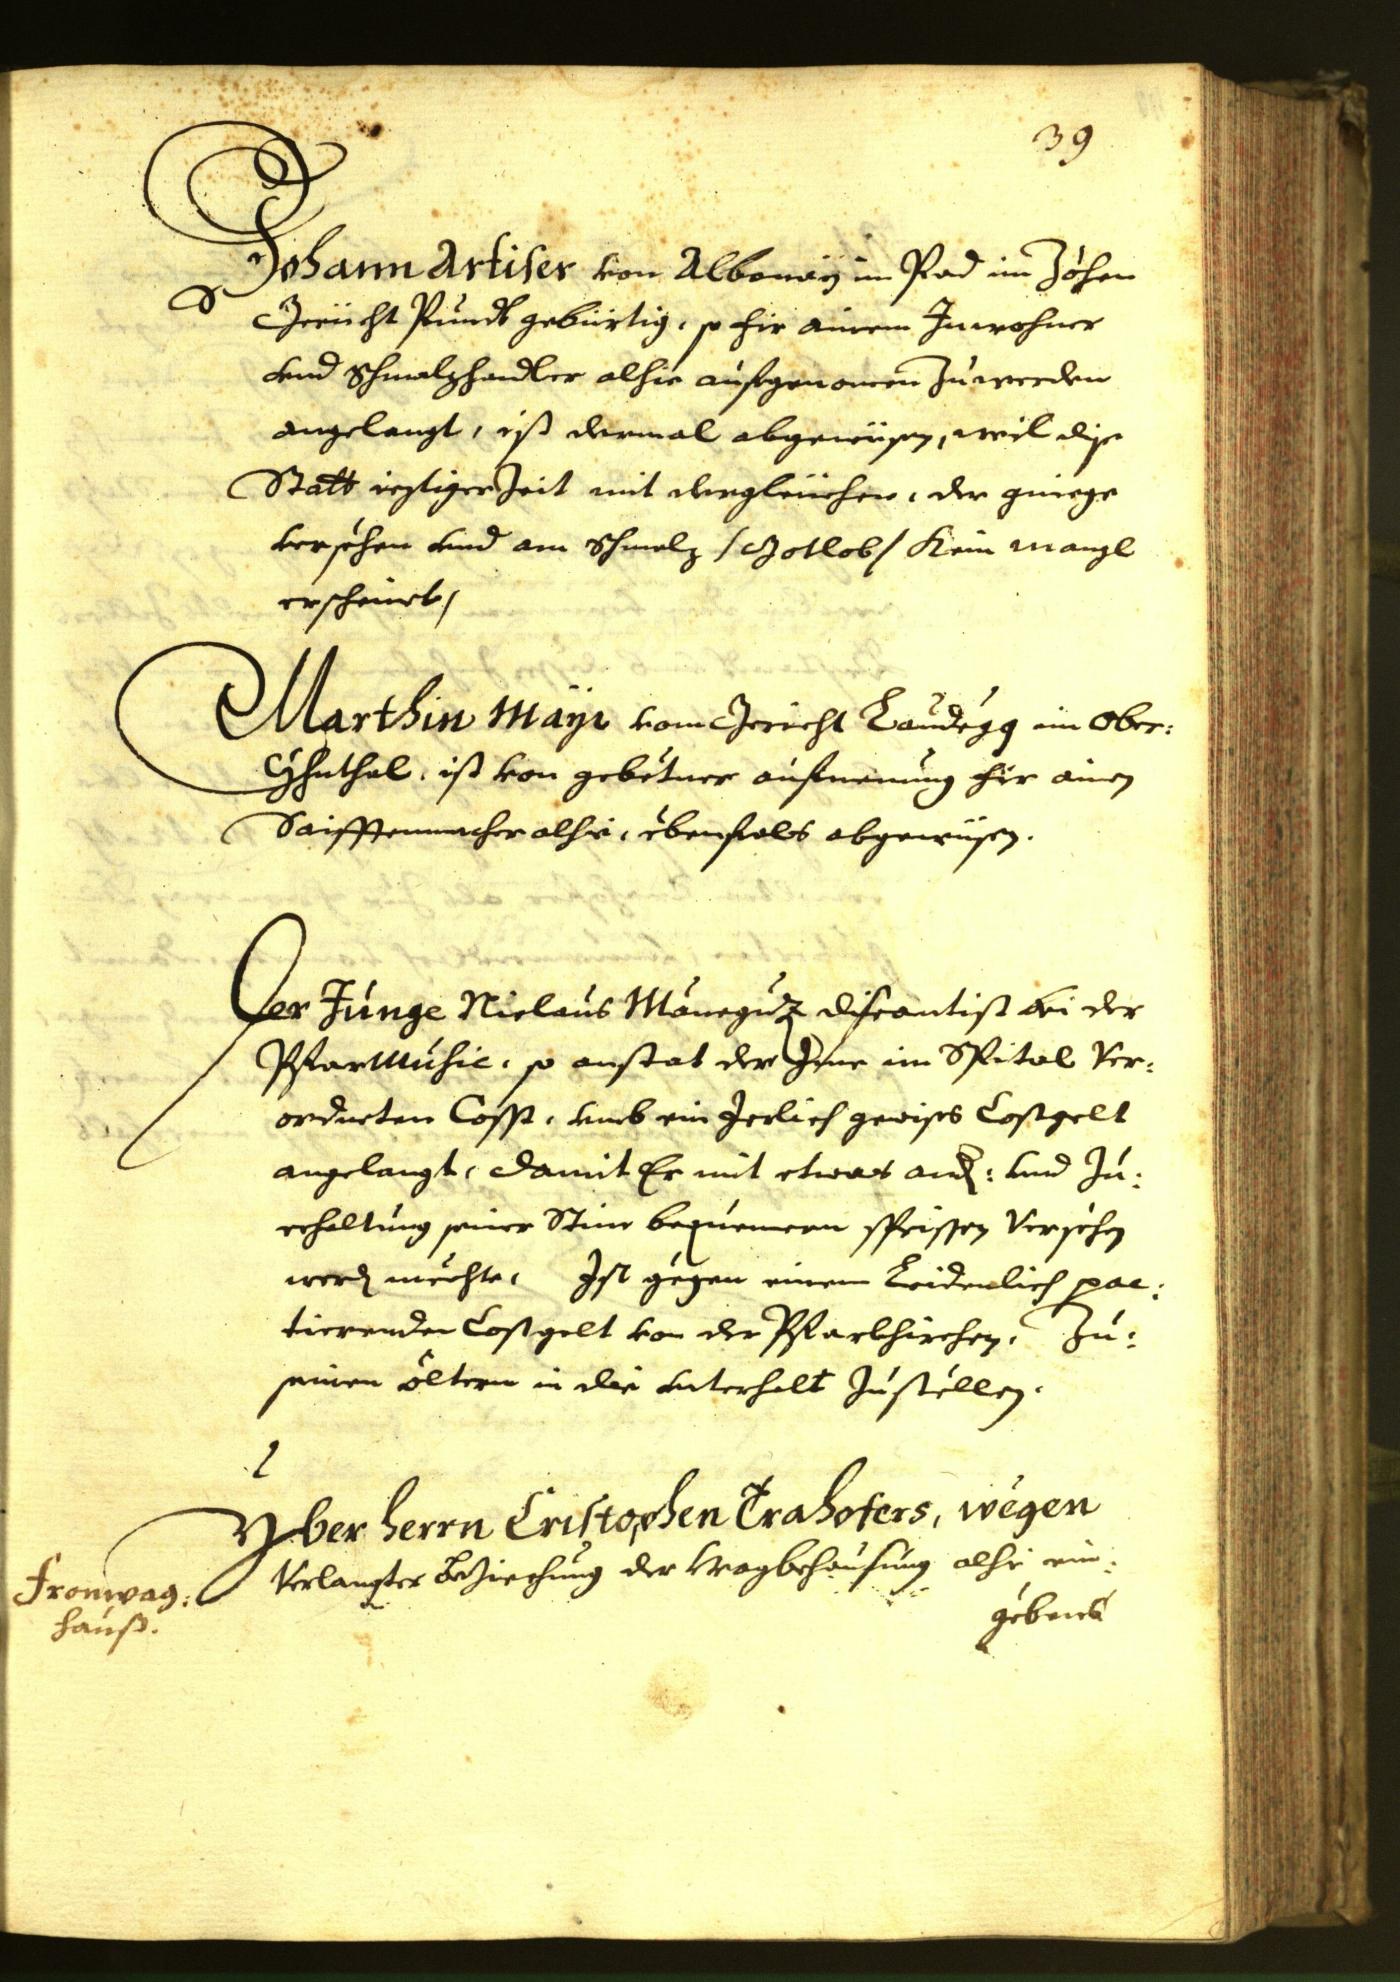 39
Johann Artiser von Albonaÿ im Pad im Zöhen
Gericht Pundt gebürtig, so fir ainem Inwohner
vnd Schmalzhandler alhie aufgenomen zuwerden
angelangt, ist dermal abgewisen, weil dise
Statt ieziger Zeit mit dergleichen, der gniege
versehen vnd am Schmalz /Gotlob/ Kein mangl
erscheinet/
Marthin Mäyr vom Gericht Laudegg im Ober:
Yhnthal, ist von gebetner aufnemung fir ainen
Saiffenmacher alhie, ebenfals abgewisen.
Der Junge Niclaus Maneguz discantist bei der
PfarMusic, so anstat der Ime im Spital Ver:
ordneten Cosst, vmb ein Jerlich gewises Costgelt
angelangt, damit Er mit etwas and: vnd zu:
erhaltung seiner Stim bequemern speissen Versehen
werden mechte, Ist gegen einem Leidenlich pac:
tierenden Costgelt von der Pfarkhirchen, Zu:
seinen öltern in die vnterhalt zustellen.
Yber herrn Cristophen Trahofers, wegen
Verlangter Beziechung der wagbehausung alhie ein:
gebens
Fronwag:
hauß.